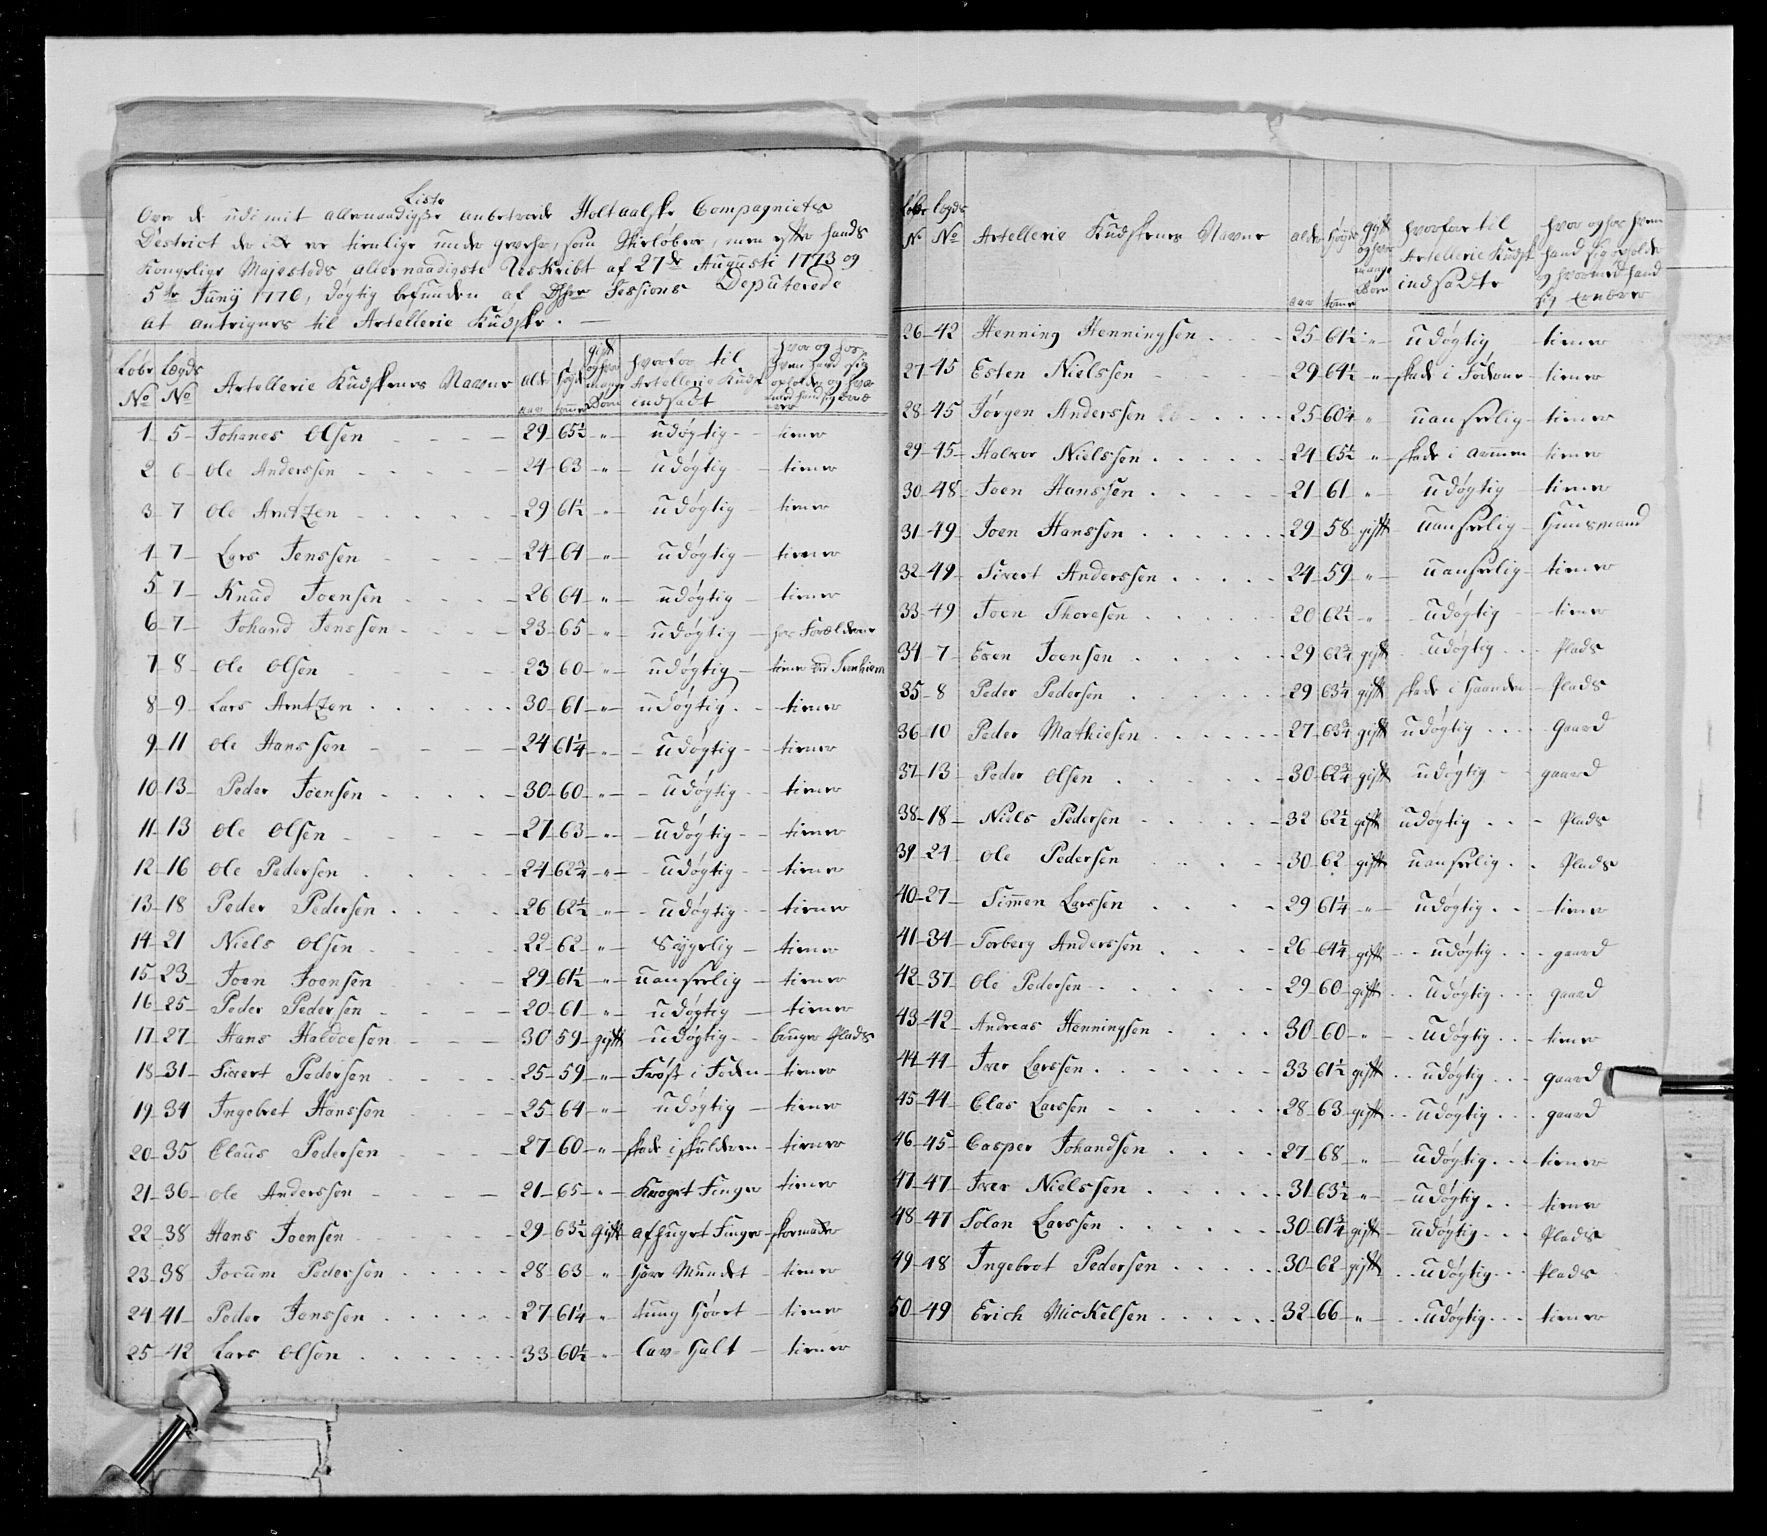 Liste
Over de udi mit allernaadigste anbetroede Holtaalske Compagnietes
District der icke ere tienlige under gevehr, som Skieløbere, men efter hands
Kongelige Majestæds allernaadigste Reskribt af 27de Augusti 1773 og
5te Junÿ 1776, døgtig befunden af Sessions Deputerede
at anteignes til Artellerie Kudske. —
Løbe No Lægds No Artellerie Kudskenes Navne alder aar høyde tomer gift og hvor mange Børn hvorfor til Artellerie Kudsk indsadt hvor og hos hvem hand sig opholder og hvormed hand sig ernærer
1 5 Johanes Olsen 29 65½ „ udøgtig tiener
2 6 Ole Anderssen 24 63 „ udøgtig tiener
3 7 Ole Arntzen 29 61½ „ udøgtig tiener
4 7 Lars Jenssen 24 61 „ udøgtig tiener
5 7 Knud Joensen 26 64 „ udøgtig tiener
6 7 Johand Jenssen 23 65 „ udøgtig hos Forældrene
7 8 Ole Olsen 23 60 „ udøgtig tiener
8 9 Lars Arntzen 30 61 „ udøgtig tiener
9 11 Ole Hanssen 24 61¼ „ udøgtig tiener
10 13 Peder Joensen 30 60 „ udøgtig tiener
11 13 Ole Olsen 27 63 „ udøgtig tiener
12 16 Ole Pedersen 24 62¾ „ udøgtig tiener
13 18 Peder Pedersen 26 62½ „ udøgtig tiener
14 21 Niels Olsen 22 62 „ Sÿgelig tiener
15 23 Joen Joensen 29 61½ „ uanseelig tiener
16 25 Peder Pedersen 20 61 „ udøgtig tiener
17 27 Hans Haldoesen 30 59 gift udøgtig bruger Plads
18 31 Sivert Pedersen 25 59 „ Frøst i Foden tiener
19 34 Ingebret Hanssen 25 64 „ udøgtig tiener
20 35 Claus Pedersen 27 60 „ skade i skulderen tiener
21 36 Ole Anderssen 21 65 „ Kroget Finger tiener
22 38 Hans Joensen 29 63½ Gift afhuget Finger skomager
23 38 Jocum Pedersen 28 63 „ tiener
24 41 Peder Jenssen 27 61¼ „ tung Hørt tiener
25 42 Lars Olsen 33 60½ „ Lav-Halt tiener
Løbe No Lægds No Artellerie Kudskenes Navne alder aar høyde tomer gift og hvor mange Børn hvorfor til Artellerie Kudsk indsadte hvor og hos hvem hand sig opholder og hvormed hand sig ernærer
26 42 Henning Henningsen 25 61½ „ udøgtig tiener
27 45 Esten Nielssen 29 64½ „ skade i Fødderne tiener
28 45 Jørgen Anderssen 25 60¼ „ uanseelig tiener
29 45 Halvor Nielssen 24 65½ „ skade i aarmen tiener
30 48 Joen Hanssen 21 61 „ udøgtig tiener
31 49 Joen Hanssen 29 58 gift uanseelig Huusmand
32 49 Sivert Anderssen 24 59 „ uanseelig tiener
33 49 Joen Thoresen 20 62½ „ udøgtig tiener
34 7 Even Joensen 29 62¾ gift udøgtig Plads
35 8 Peder Pedersen 29 63¼ gift skade i Haanden Plads
36 10 Peder Mathiesen 27 63¾ gift udøgtig Gaard
37 13 Peder Olsen 30 62¾ gift udøgtig gaard
38 18 Niels Pedersen 32 62½ gift udøgtig Plads
39 21 Ole Pedersen 30 62 gift uanseelig Plads
40 27 Simen Larssen 29 61¼ „ udøgtig tiener
41 34 Torberg Anderssen 26 64¼ gift udøgtig gaard
42 37 Ole Pedersen 29 60 gift udøgtig gaard
43 42 Andreas Henningsen 30 60 „ udøgtig tiener
44 44 Iver Larssen 33 61½ gift udøgtig gaard
45 44 Clas Larssen 28 63 gift udøgtig gaard
46 45 Casper Johandsen 27 68 „ udøgtig tiener
47 47 Iver Nielssen 31 63½ „ udøgtig tiener
48 47 Solan Larssen 30 61¾ gift udøgtig Plads
49 48 Ingebrot Pedersen 30 62 gift udøgtig Plads
50 49 Erich Mickelsen 32 66 „ udøgtig tiener